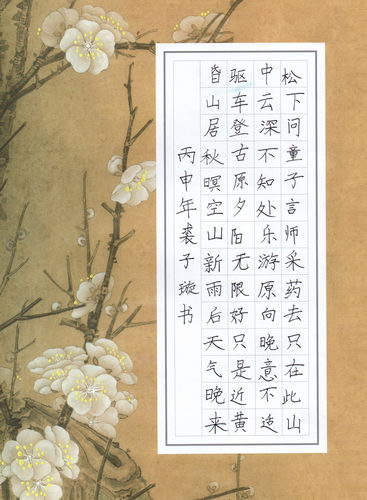 松下问童子言师采药去只在此山
中云深不知处乐游原向晚意不适
驱车登古原夕阳无限好只是近黄
昏山居秋暝空山新雨后天气晚来
丙申年裘子璇书